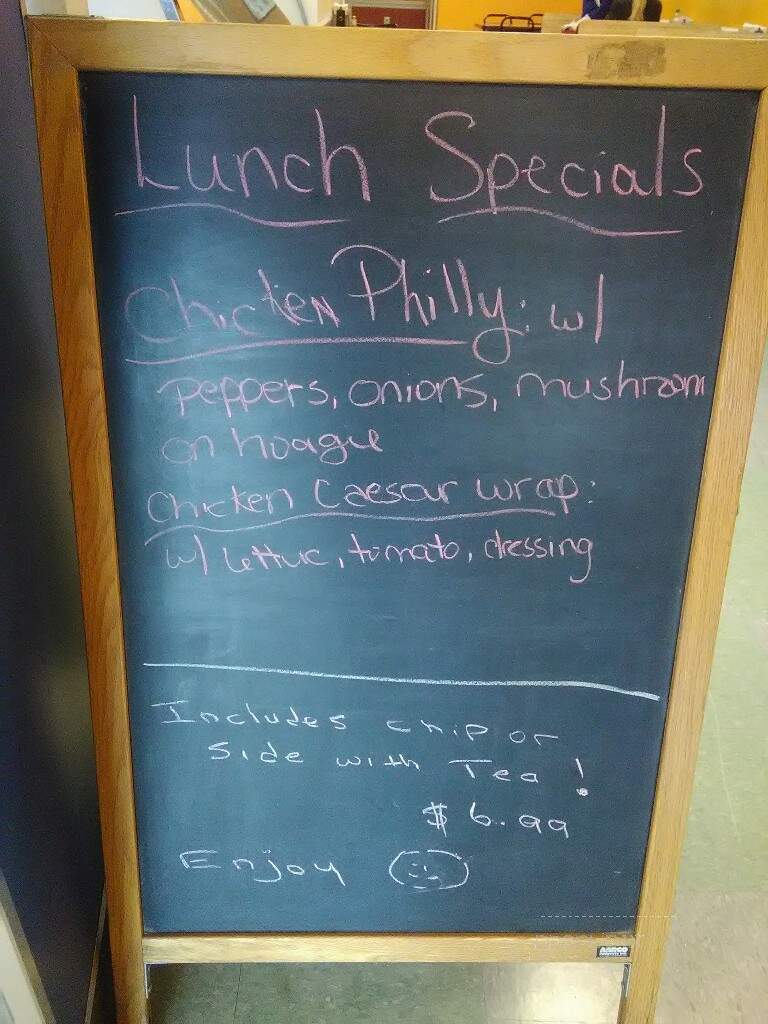 Lunch Specials
Chicken Philly: w/
peppers, onions, mushroom
on hoagie
Chicken Caesar wrap:
w/ lettuc, tomato, dressing
Includes chip or
side with Tea!
$6.99
Enjoy
AARCO